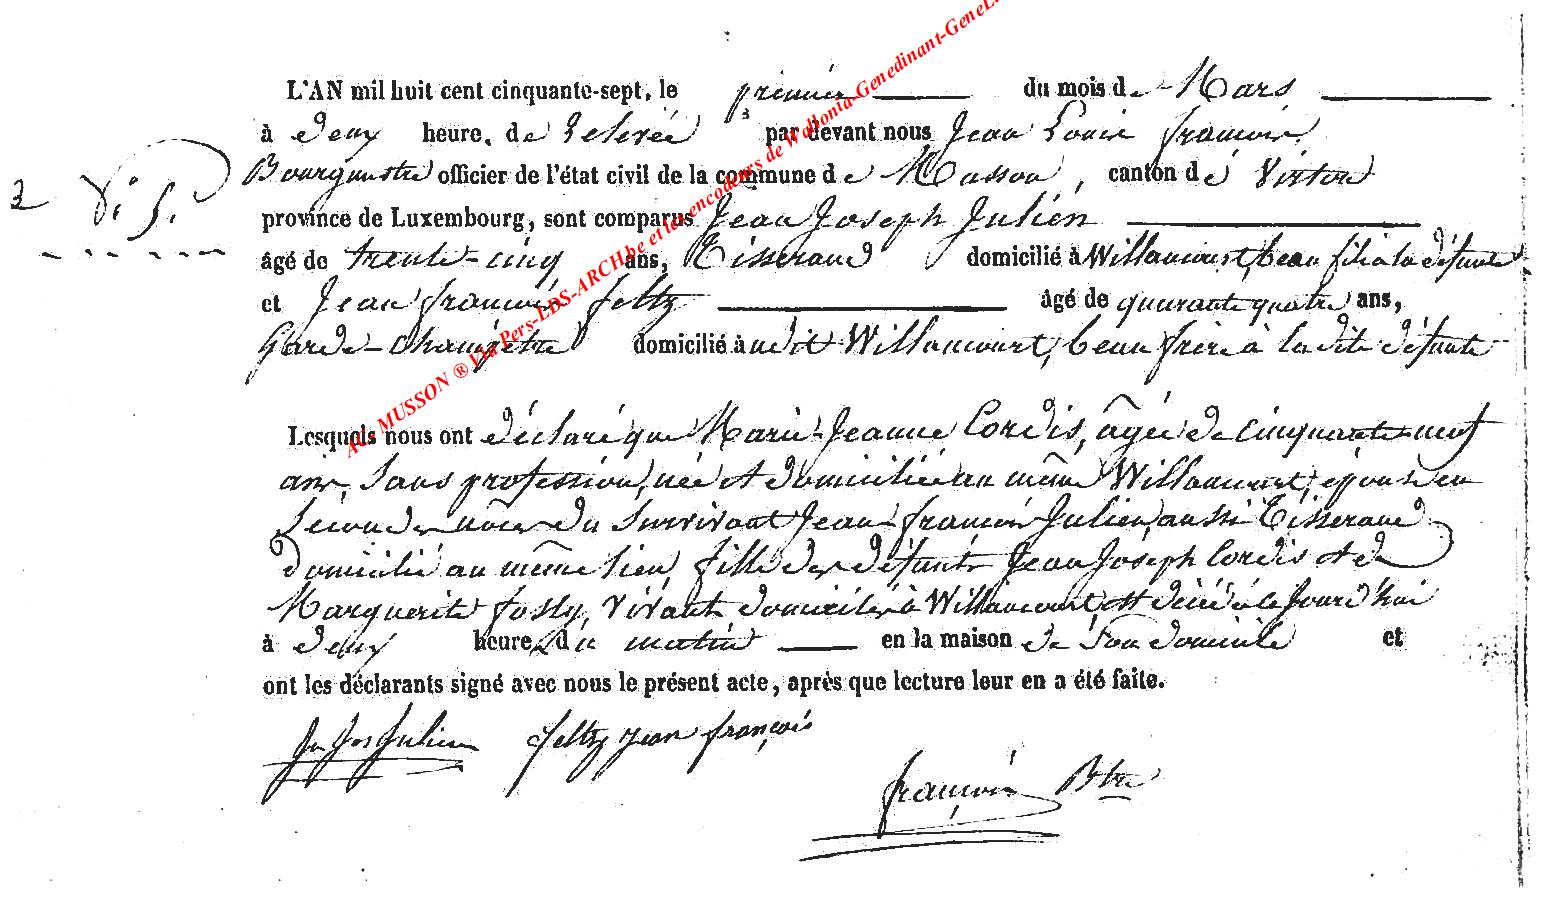 L'AN mil huit cent cinquante-sept, le premier du mois de Mars
à deux heure, de relevée par devant nous Jean Louis françois
Bourgmestre officier de l'état civil de la commune de Musson, canton de Virton
3
province de Luxembourg, sont comparus Jean Joseph Julien
âgé de trente-cinq ans, Tisserand domicilié à Willancourt, beau fils à la défunte
et Jean françois feltz âgé de quarante quatre ans,
Garde-champêtre domicilié audit Willancourt, beau frère à la dite défunte
Lesquels nous ont déclaré que Marie-Jeanne Cordis, âgée de cinquante-neuf
ans, sans profession, née et domiciliée au même Willancourt, épouse en
secondes noces du survivant Jean-françois Julien, aussi Tisserand
domicilié au même lieu, fille des défunts Jean Joseph Cordis et de
Marguerite, vivants domiciliés à Willancourt, est décédée le jourd'hui
à deux heures du matin en la maison de son domicile et
ont les déclarants signé avec nous le présent acte, après que lecture leur en a été faite.
Jn Jos Julien feltz jean françois
françois Btre
AC MUSSON ® Via Pers-LDS-ARCH.be et les encodeurs de Wallonia-Genedinant-GeneL